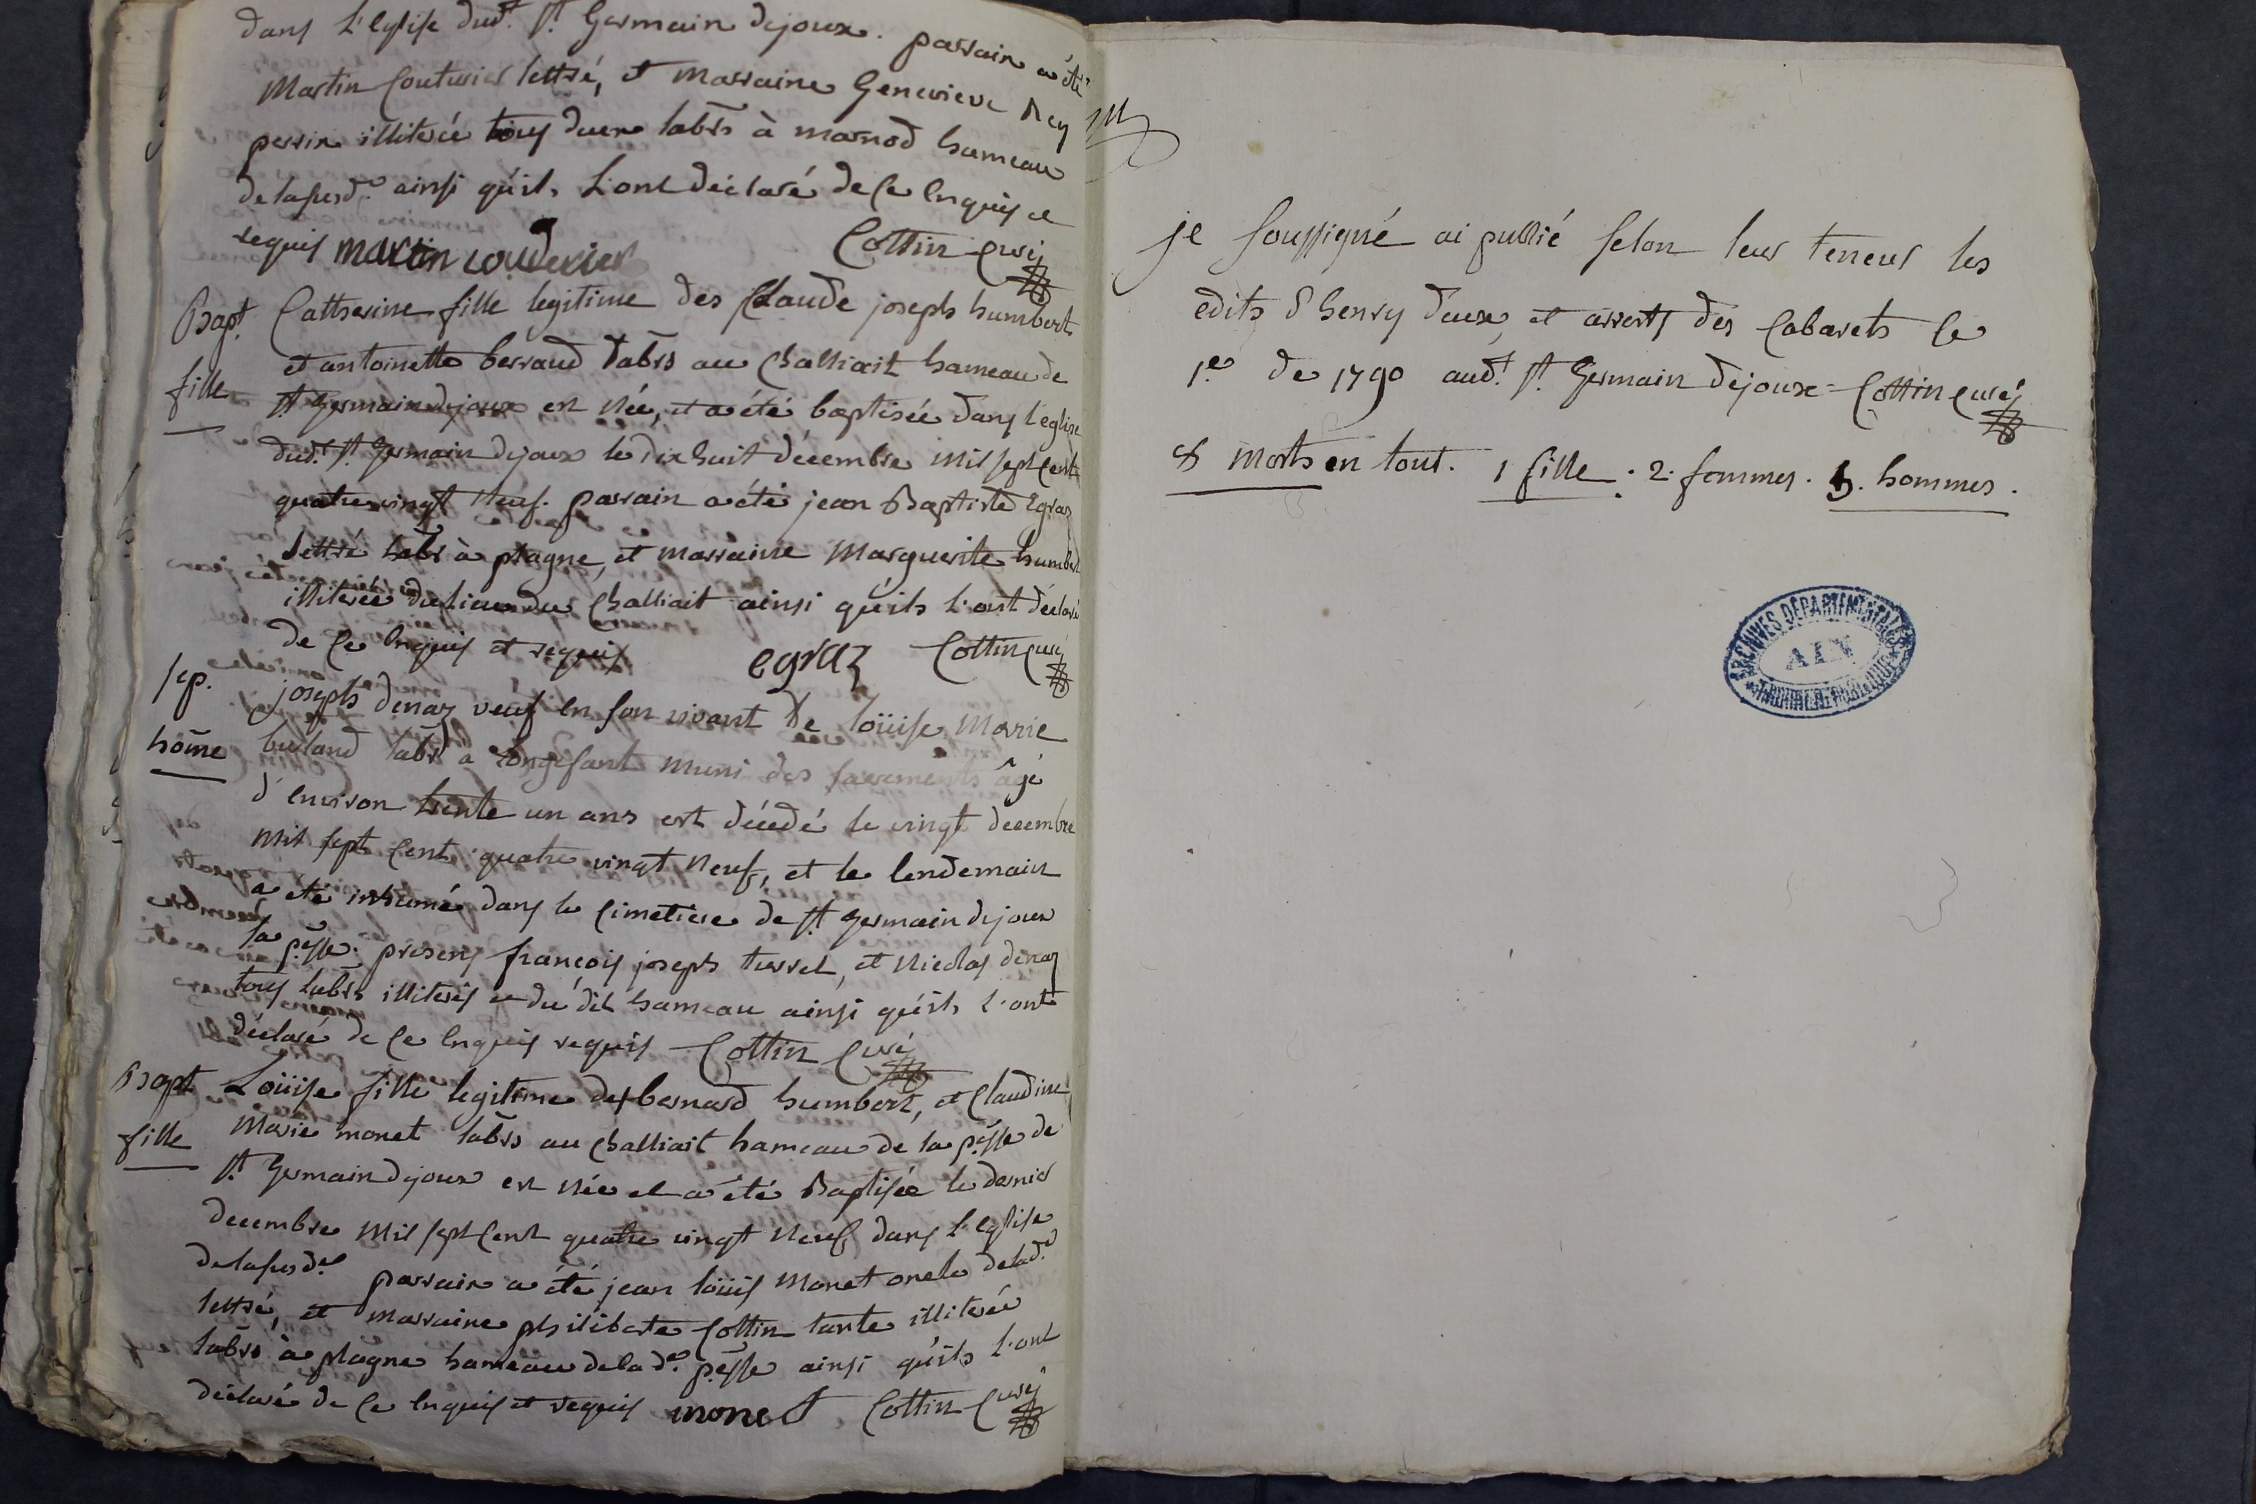 dans L'Eglise dud.t St. Germain dejoux. parrain a été
Martin Couturier lettré, et marraine Genevieve Rey
perrin illiterée tous deux labrs à marnod hameau
de lasusd.e ainsi qu'ils L'ont déclaré de Ce Enquis et
requis martin couderier Cottin curé
Bapt. Catherine fille legitime des Claude joseph humbert
et antoinette berraud labrs au Challiait hameau de
fille St Germain dejoux est Née, et a été baptisée dans l'eglise
dud.t St Germain dejoux le dix huit décembre mil sept Cent
quatre vingt Neuf. parrain a été jean Baptiste Egraz
Lettré labr à plagne, et marraine Marguerite humbert
illiterée du lieu du Challiait ainsi qu'ils L'ont déclaré
de Ce Enquis et requis egraz Cottin curé
sep. joseph dénaz veuf En son vivant de Loüise Marie
hom̃e burland labr à Longefant muni des sacrements âgé
d'Environ trente un ans est décédé le vingt decembre
mil sept Cent quatre vingt Neuf, et le lendemain
a eté inhumé dans le Cimetiere de St Germain dejoux
la p.sse. presens françois joseph turrel, et Nicolas dénaz
tous labrs illiterés et du dit hameau ainsi qu'ils L'ont
déclaré de Ce Enquis requis Cottin Curé
Bapt Loüise fille legitime des bernard humbert, et Claudine
Marie monet labrs au Challiait hameau de la p.sse de
fille St Germain dejoux est Née et a été Baptisée le dernier
decembre mil sept Cent quatre vingt Neuf dans L'eglise
de lasusd.e parrain a été jean loüis Monet oncle de lad.e
lettré, et marraine philiberte Cottin tante illiterée
labrs à plagne hameau de la d.e p.sse ainsi qu'ils L'ont
déclaré de Ce Enquis et requis monet Cottin Curé
je soussigné ai publié selon leur teneur les
edits d'henry deux, et arrerts des Cabarets Ce
1.e de 1790 aud.t St. Germain dejoux = Cottin curé
8 morts en tout. 1 fille. 2. femmes. 5. hommes.
ARCHIVES DÉPARTEMENTALES
AIN